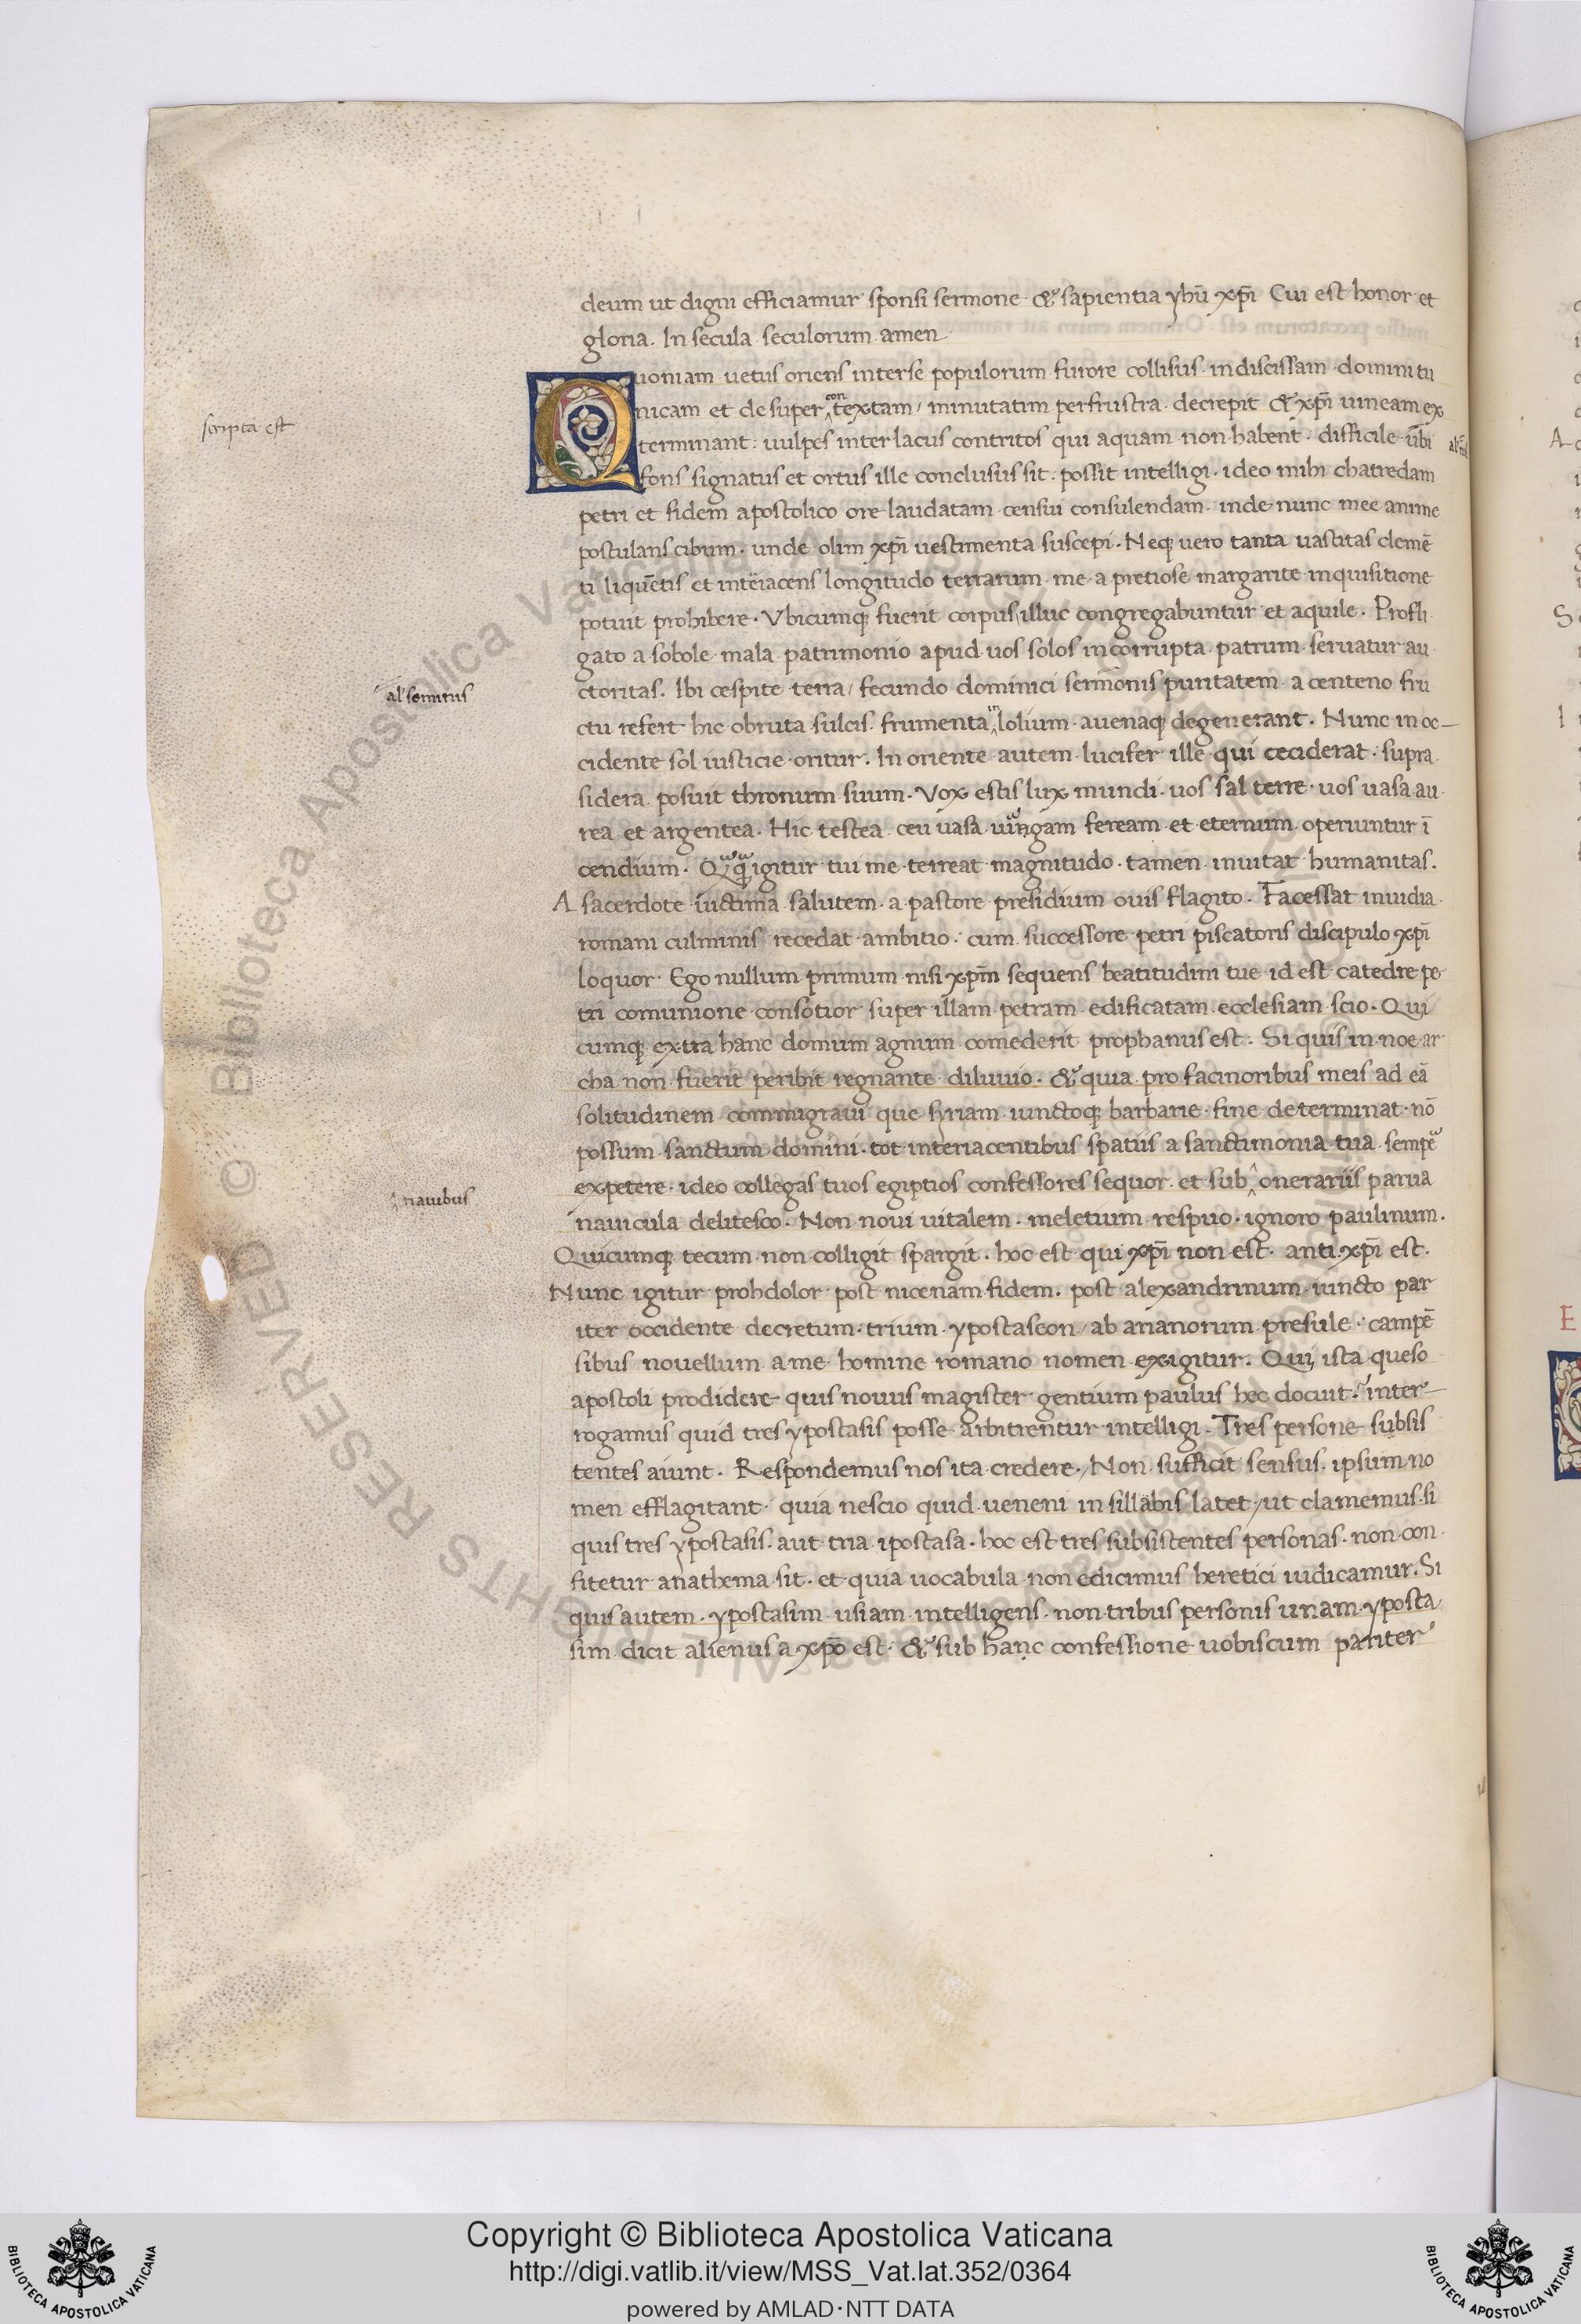 deum ut digni efficiamur sponsi sermone & sapientia yhū xp̄i Cui est honor et
gloria. In secula seculorum amen
Quoniam uetus oriens inter se populorum furore collisus indiscissam domini tu
nicam et desuper contextam / minutatim per frustra decrepit & xp̄i uineam ex
terminant: uulpes inter lacus contritos qui aquam non habent. difficile ūbi
fons signatus et ortus ille conclusus sit: possit intelligi. ideo mihi chatredam
petri et fidem apostolico ore laudatam censui consulendam. inde nunc mee anime
postulans cibum. unde olim xp̄i uestimenta suscepi. Neq; uero tanta uastitas clemē
ti liquētis et interiacens longitudo terrarum me a pretiose margarite inquisitione
potuit prohibere. Vbicumq; fuerit corpus illuc congregabuntur et aquile. Profli
gato a sobole mala patrimonio apud uos solos incorrupta patrum seruatur au
ctoritas. Ibi cespite terra / fecundo dominici sermonis puritatem a centeno fru
ctu refert hic obruta sulcis frumenta in lolium auenaq; degenerant. Nunc in oc
cidente sol iusticie oritur. In oriente autem lucifer ille qui ceciderat: supra
sidera posuit thronum suum. Vox estis lux mundi. uos sal terre. uos uasa au
rea et argentea. Hic testea ceu uasa uirgam feream et eternum operiuntur ī
cendium. Q igitur tui me terreat magnitudo. tamen inuitat humanitas.
A sacerdote iuctima salutem. a pastore presidium ouis flagito. Facessat inuidia
romani culminis recedat ambitio. cum successore petri piscatoris discipulo xp̄i
loquor. Ego nullum primum nisi xp̄m sequens beatitudini tue id est catedre pe
tri comunione consotior super illam petram edificatam ecclesiam scio. Qui
cumq; extra hanc domum agnum comederit prophanus est. Si quis in noe ar
cha non fuerit peribit regnante diluuio. & quia pro facinoribus meis ad eā
solitudinem commigraui que syriam iunctoq; barbarie fine determinat. nō
possum sanctum domini. tot interiacentibus spatiis a sanctimonia tua semper
expetere. ideo collegas tuos egiptios confessores sequor. et sub onerariis parua
nauicula delitesco. Non noui uitalem. meletium respuo. ignoro paulinum.
Quicumq; tecum non colligit spargit. hoc est qui xp̄i non est. anti xp̄i est.
Nunc igitur prohdolor post nicenam fidem. post alexandrinum iuncto par
iter occidente decretum. trium ypostaseon / ab arianorum presule. campē
sibus nouellum a me homine romano nomen exigitur. Qui ista queso
apostoli prodidere quis nouus magister gentium paulus hec docuit. inter
rogamus quid tres ypostasis posse arbitrentur intelligi. Tres persone subsis
tentes aiunt. Respondemus nos ita credere. Non sufficit sensus. ipsum no
men efflagitant. quia nescio quid ueneni in sillabis latet / ut clamemus. si
quis tres ypostasis. aut tria ipostasa. hoc est tres subsistentes personas. non con
fitetur anathema sit. et quia uocabula non edicimus heretici iudicamur. Si
quis autem. ypostasim usiam intelligens. non tribus personis unam yposta
sim dicit alienus a xp̄o est. & sub hanc confessione uobiscum pariter
scripta est
al' semitus
nauibus
Copyright © Biblioteca Apostolica Vaticana
http://digi.vatlib.it/view/MSS_Vat.lat.352/0364
powered by AMLAD·NTT DATA
BIBLIOTECA APOSTOLICA VATICANA
BIBLIOTECA APOSTOLICA VATICANA